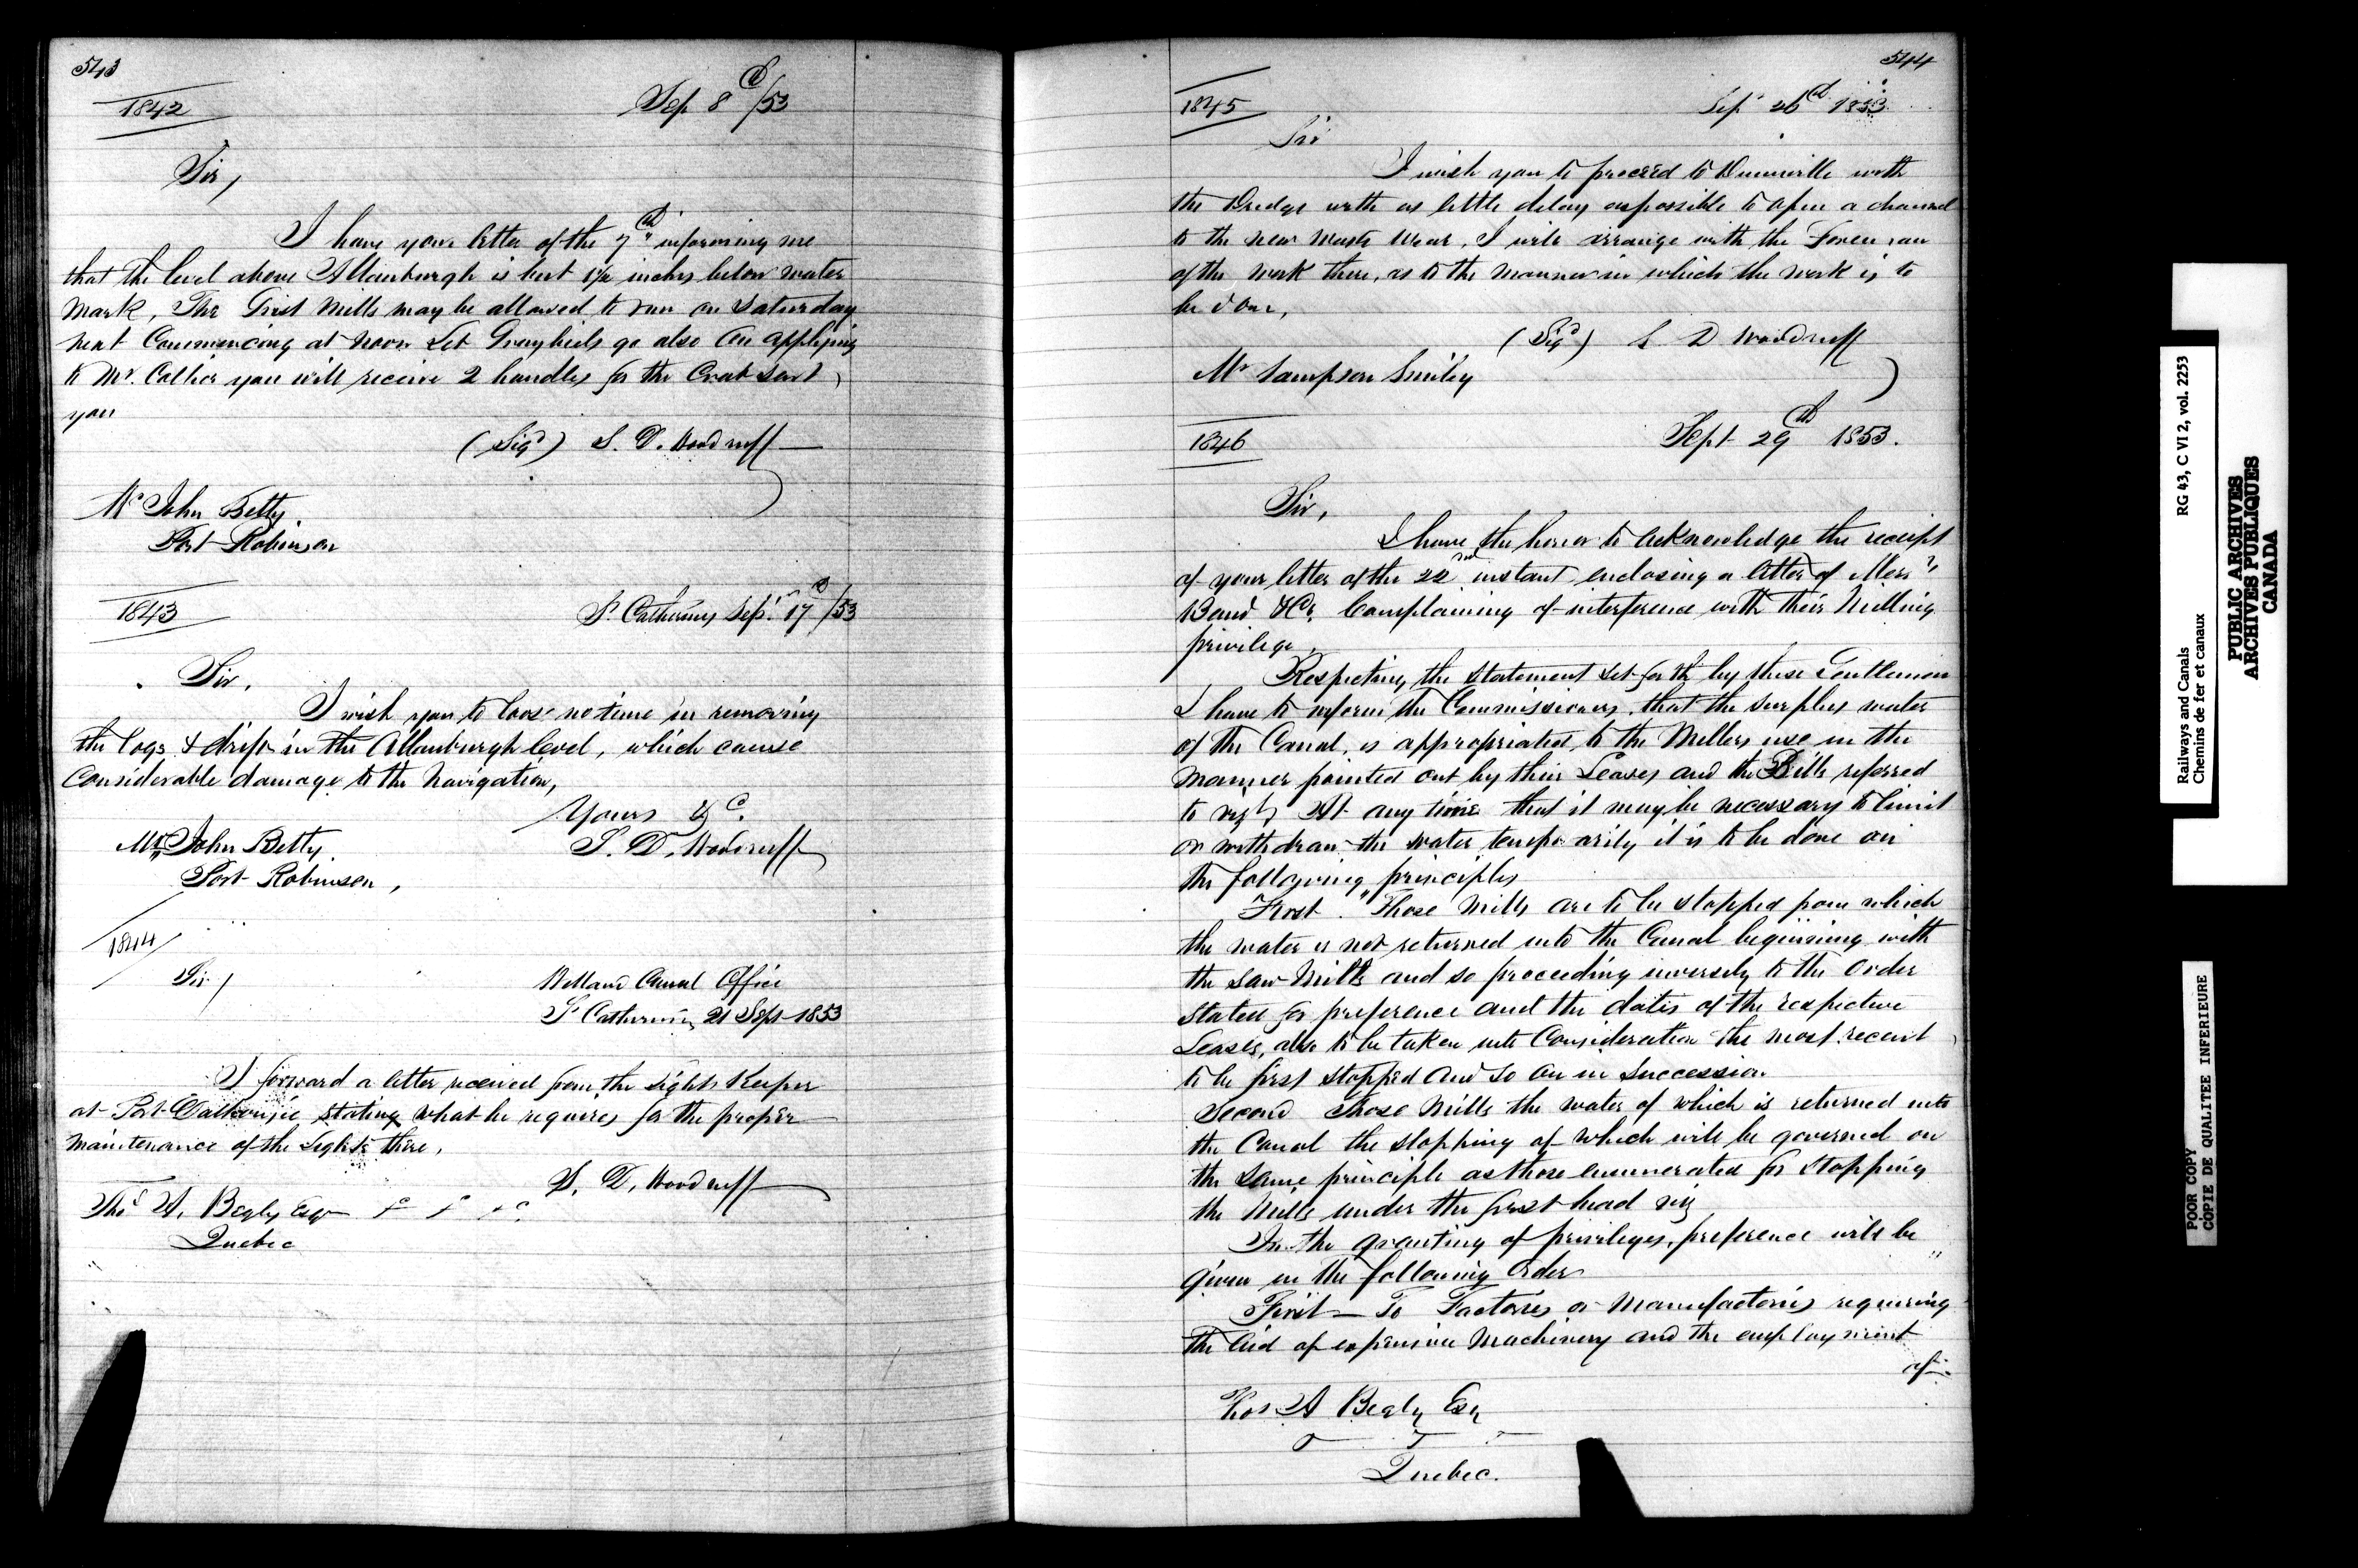 543
1842
Sep 8th/53
Sir,
I have your letter of the 7th informing me
that the level above Allanburgh is but 1½ inches below water
mark, The Grist Mills may be allowed to run on Saturday
next Commencing at Noon Let go also On applying
to Mr. Collier you will receive 2 handles for the Crab sent
you
(Sigd) S. D. Woodruff
Mr John Betty
Port Robinson
1843
St Catherines Sept. 17th/53
Sir,
I wish you to loose no time in removing
the logs & drift in the Allanburgh level, which cause
Considerable damage to the Navigation,
Yours &c.
S. D. Woodruff
Mr John Betty
Port Robinson,
1844
Sir,
Welland Canal Office
St Catherines 21 Sept 1853
I forward a letter received from the Lights Keeper
at Port Dalhousie stating what he requires for the proper
maintenance of the Lights there,
S. D. Woodruff
Thos A. Begly Esqr &c &c &c.
Quebec
544
1845
Sepr 26th 1853
Sir
I wish you to proceed to Dunnville with
the Dredge with as little delay as possible to open a channel
to the new Waste Wear, I will arrange with the Foreman
of the work there, as to the manner in which the work is to
be done,
(Sigd) S D Woodruff
Mr Sampson Smiley
1846
Sept 29th 1853.
Sir,
I have the honor to acknowledge the receipt
of your letter of the 22nd instant enclosing a letter of Messrs
Band &Co. Complaining of interference with their Milling
privilege,
Respecting the statement set forth by these Gentlemen
I have to inform the Commissioners, that the surplus water
of the Canal, is appropriated to the Millers use in the
manner pointed out by their Leases and the Bills referred
to viz At any time that it may be necessary to limit
or withdraw the water temporarily it is to be done on
the following principles
First. "Those Mills are to be stopped from which
the water is not returned into the Canal beginning with
the Saw Mills and so proceeding inversely to the order
stated for preference and the dates of the respective
Leases, also to be taken into Consideration the most recent
to be first stopped and so on in succession
Second Those Mills the water of which is returned into
the Canal the stopping of which will be governed on
the same principle as those enumerated for stopping
the Mills under the first head viz
In the granting of privileges, preference will be
given in the following Order
First — To Factories or Manufactories requiring
the aid of expensive Machinery and the employment
of
Thos A Begly Esq
Quebec.
Railways and Canals
Chemins de fer et canaux
RG 43, C VI 2, vol. 2253
PUBLIC ARCHIVES
ARCHIVES PUBLIQUES
CANADA
POOR COPY
COPIE DE QUALITEE INFERIEURE